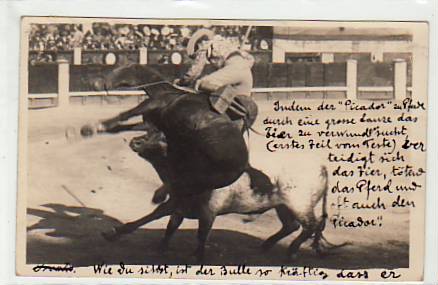 Indem der "Picador" zu Pferd
durch eine grosse Lanze das
Tier zu verwunden sucht
(erstes Teil vom Feste) ver
teidigt sich
das Tier, tötend
das Pferd und
oft auch den
"Picador".
Wie Du siehst, ist der Bulle so kräftig dass er